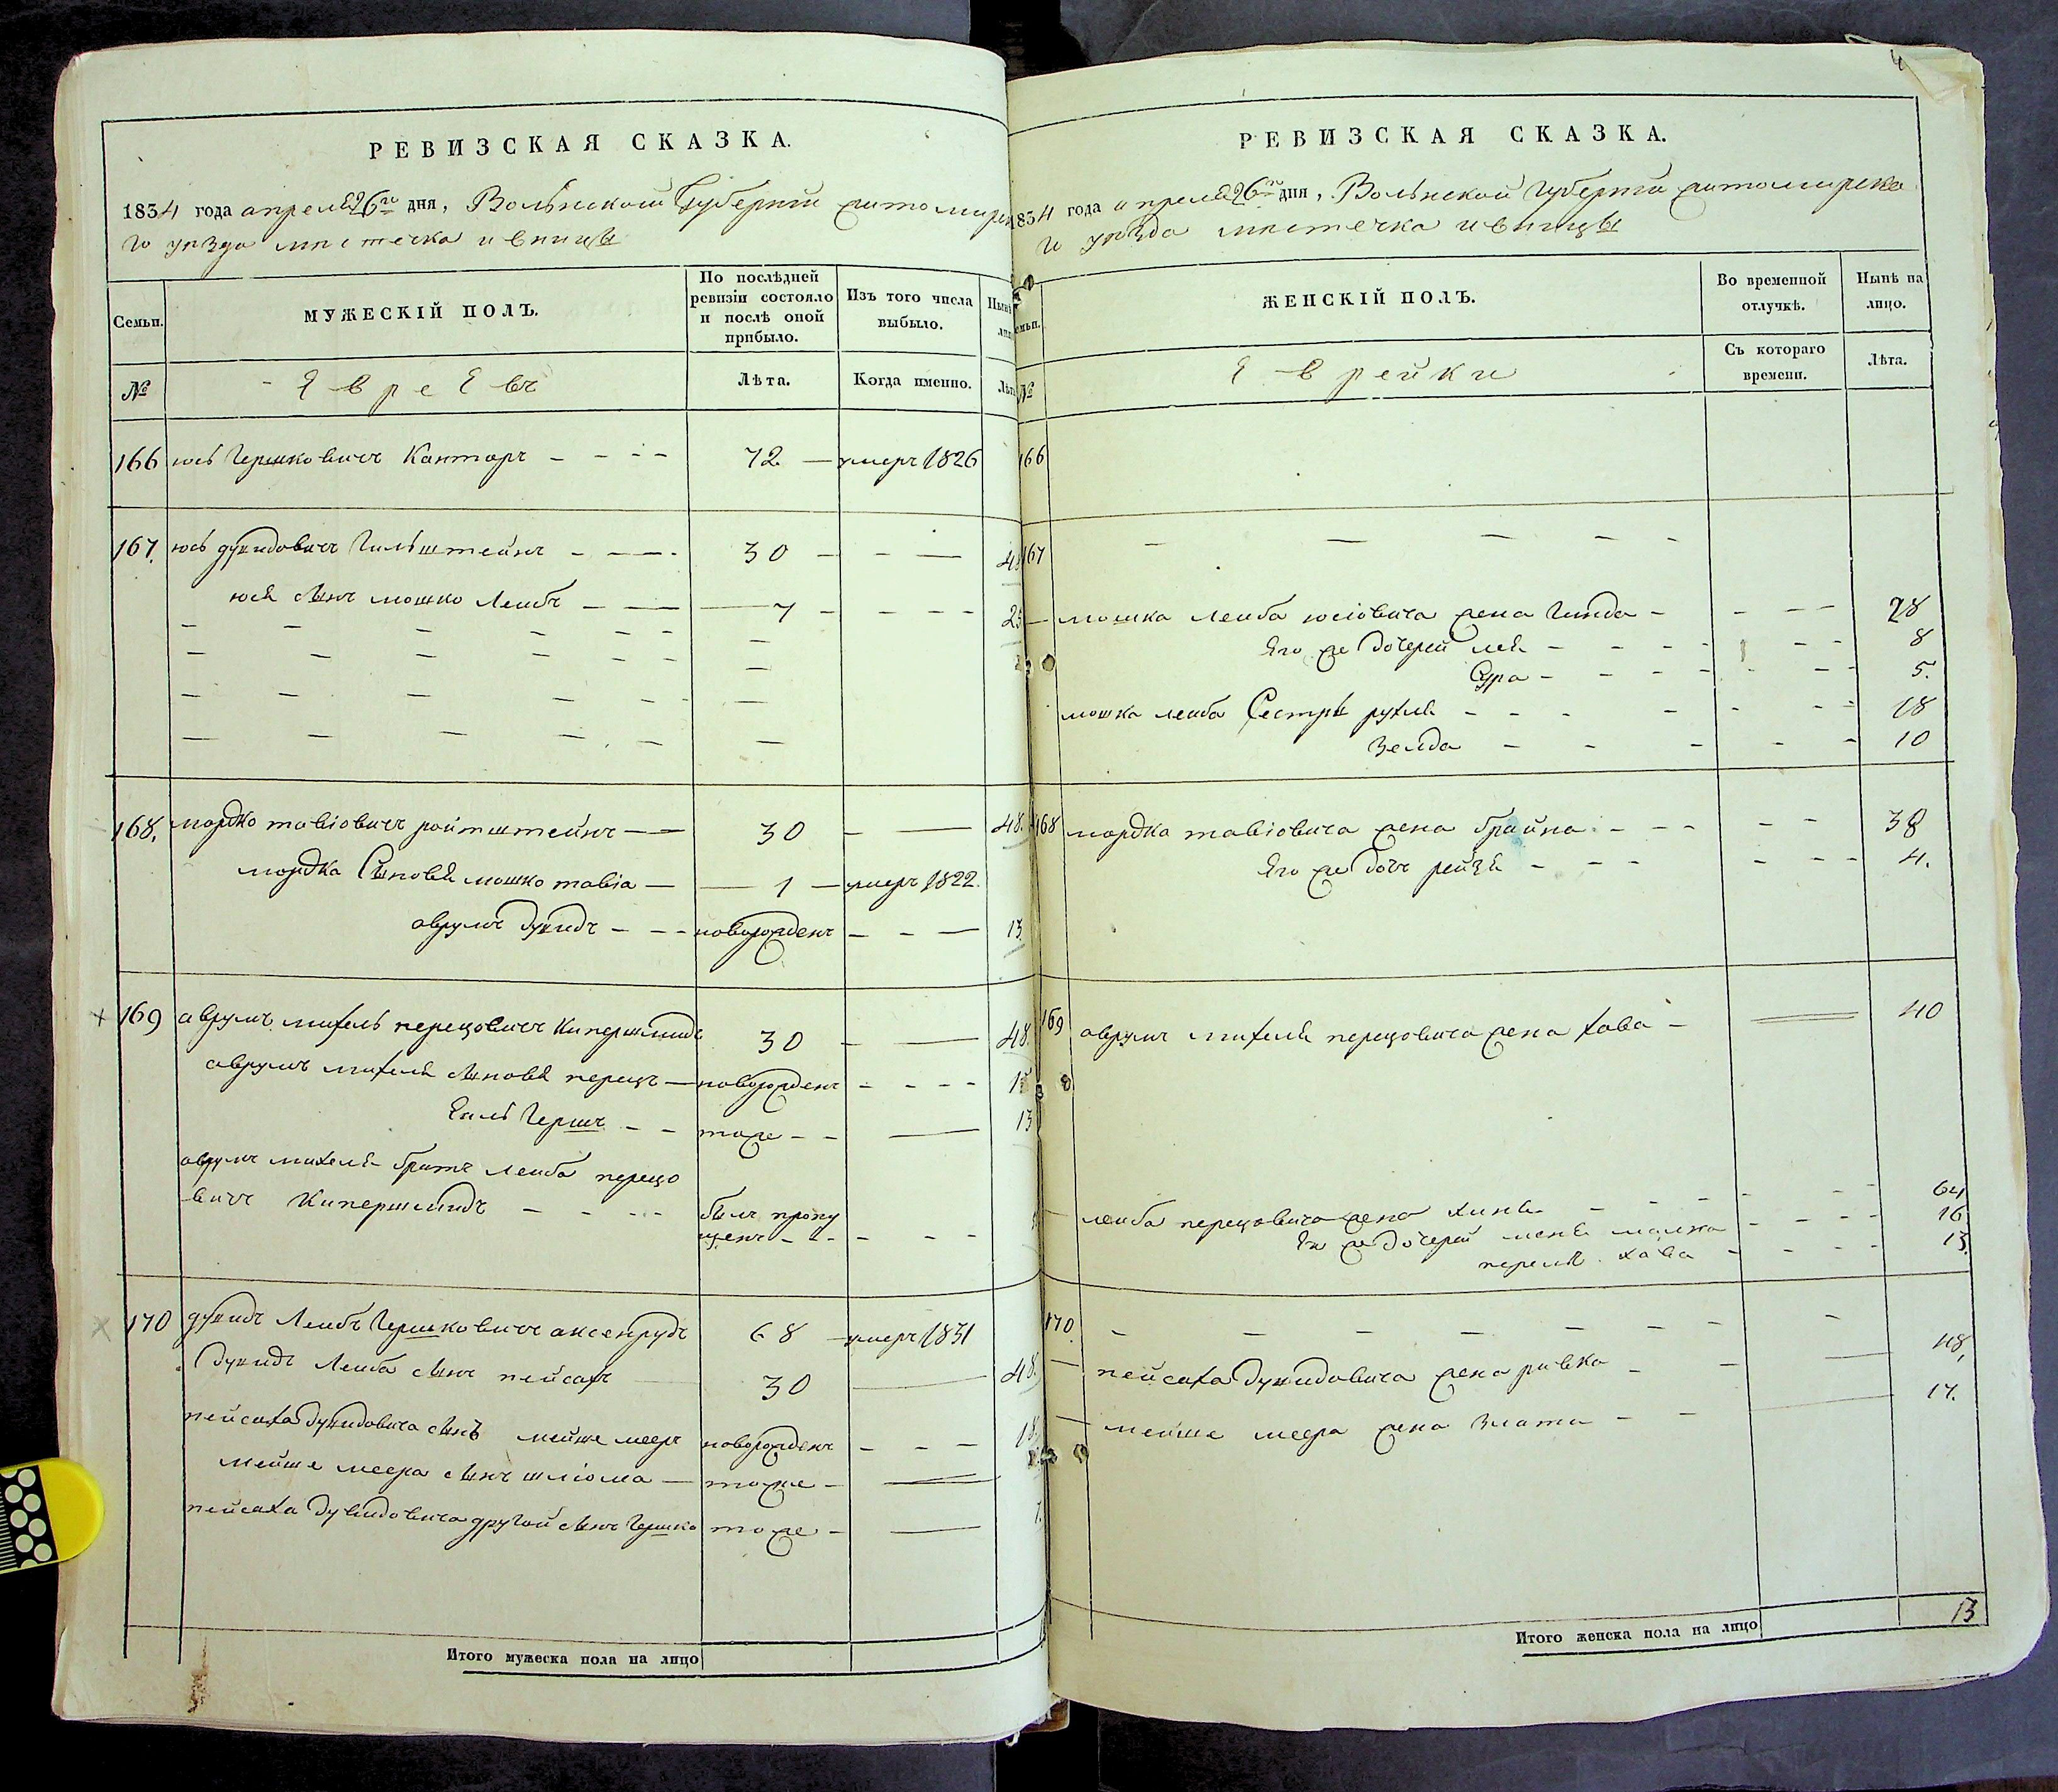 РЕВИЗСКАЯ СКАЗКА.
1834 года апреля 26го дня, Волынской Губернии житомирска
го уезда местечка ивницы
Семьи.
МУЖЕСКІЙ ПОЛЪ.
По послѣдней ревизіи состояло и послѣ оной прибыло.
Изъ того числа выбыло.
Нынѣ
№
Евреевъ
Лѣта.
Когда именно.
Лѣта
166 юсь Гершковичъ Канторъ - - - - 72. — умеръ 1826
167. юсь дувидовичъ Гильштейнъ - — - 30 - - — 48
юся сынъ мошко Лейбъ - — — 7 - - - - 25
168. мордко тавіовичъ ройтштейнъ — — 30 - — 48.
мордка Сыновья мошко тавіа — — 1 — умеръ 1822.
аврумъ дувидъ - - - новорожденъ - - — 13.
169 аврумъ михель перецовичъ Купершмидъ 30 - — 48.
аврумъ михеля сыновья перецъ — новорожденъ - - - - 15
Гершъ - - тоже - - — 13
аврумъ михеля братъ лейба перецо
вичъ Купершмидъ - - - - былъ пропу
щенъ - - - - - -
170 дувидъ Лейбъ Гершковичъ аксенрудъ 68 — умеръ 1831
Дувидъ Лейба сынъ пейсахъ 30 — 48.
пейсаха дувидовича сынъ мейше мееръ новорожденъ - - — 18.
мейше меера сынъ шліома — тоже — —
пейсаха дувидовича другой сынъ Гершко тоже — — 1.
Итого мужеска пола на лицо
РЕВИЗСКАЯ СКАЗКА.
1834 года апреля 26го дня, Волынской Губернии житомирска
го уезда местечка ивницы
Семьи.
ЖЕНСКІЙ ПОЛЪ.
Во временной отлучкѣ.
Нынѣ на лицо.
№
Еврейки
Съ котораго времени.
Лѣта.
166
167 — — — - -
мошка лейба юсіовича жена Гинда - - — 28
Его же дочерей лея - - - - - 8
Сура - - - - - - 5.
мошка лейба Сестры рухля - - - - - - 18
Зелда - - - - - 10
168 мордка тавіовича жена брайна - - - - - 38
Его же дочь рейзя - - - - - - 4.
169 аврумъ михеля перецовича жена хава - — 40
лейба перецовича жена - - - - - 64
Ея же дочерей малка - - - - 16
перля хава - - - - 13.
170. — — — — - - -
пейсаха дувидовича жена ривка - - — 48,
мейше меера жена Злата - - — 17.
Итого женска пола на лицо 13